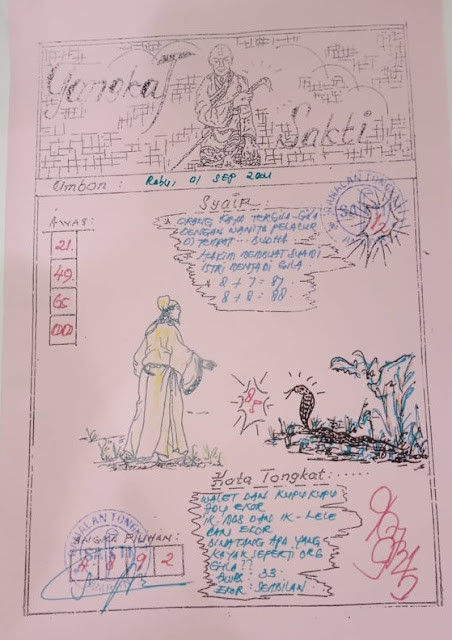 Tongkat
Sakti
Umbon : Rabu, 01 SEP 2021
Syair :
ORANG KAYA TERGILA-GILA
DENGAN WANITA PELACUR
DI TEMPAT... BUDHA
HAKIM MEMBUAT SUAMI
ISTRI MENJADI GILA
8 + 7 = 87
8 + 8 = 88
AWAS :
21
49
65
Kata Tongkat :......
WALET DAN KUPU KUPU
EKOR
IK. MAS DAN IK - LELE
EKOR
BINATANG APA YANG
KAYAK SEPERTI ORG
GILA ??
33
EKOR : SEMBILAN
ANGKA PILIHAN :
8 9 2